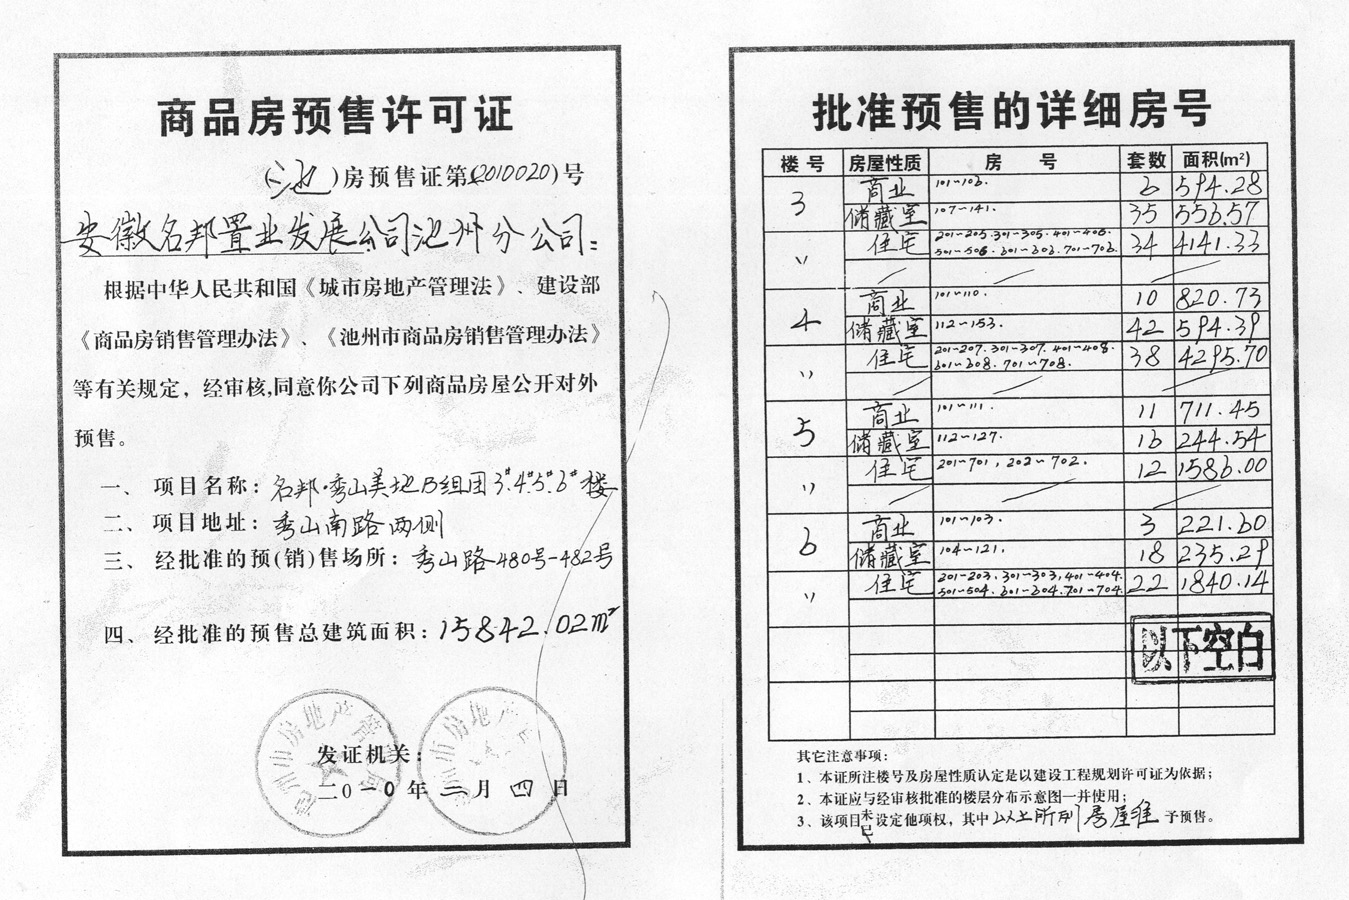 商品房预售许可证
(池)房预售证第(2010020)号
安徽名邦置业发展公司池州分公司：
根据中华人民共和国《城市房地产管理法》、建设部
《商品房销售管理办法》、《池州市商品房销售管理办法》
等有关规定，经审核,同意你公司下列商品房屋公开对外
预售。
一、项目名称：名邦·秀山美地B组团3#.4#.5#.6#楼
二、项目地址：秀山南路西侧
三、经批准的预(销)售场所：秀山路480号-482号
四、经批准的预售总建筑面积：15842.02m²
发证机关：
二0一0年三月四日
批准预售的详细房号
楼号 房屋性质 房号 套数 面积(m²)
3 商业 101~106. 6 594.28
储藏室 107~141. 35 556.57
〃 住宅 201~205.301~305.401~406. 34 4141.33
501~506.601~606.701~706.
4 商业 101~110. 10 820.73
储藏室 112~153. 42 594.39
〃 住宅 201~207.301~307.401~408. 38 4295.70
601~608.701~708.
5 商业 101~111. 11 711.45
储藏室 112~127. 16 244.54
〃 住宅 201~701,202~702. 12 1586.00
6 商业 101~103. 3 221.60
储藏室 104~121. 18 235.29
〃 住宅 201~203.301~303,401~404. 22 1840.14
501~504.601~604.701~704.
以下空白
其它注意事项：
1、本证所注楼号及房屋性质认定是以建设工程规划许可证为依据；
2、本证应与经审核批准的楼层分布示意图一并使用；
3、该项目未已设定他项权，其中以上所列房屋准予预售。